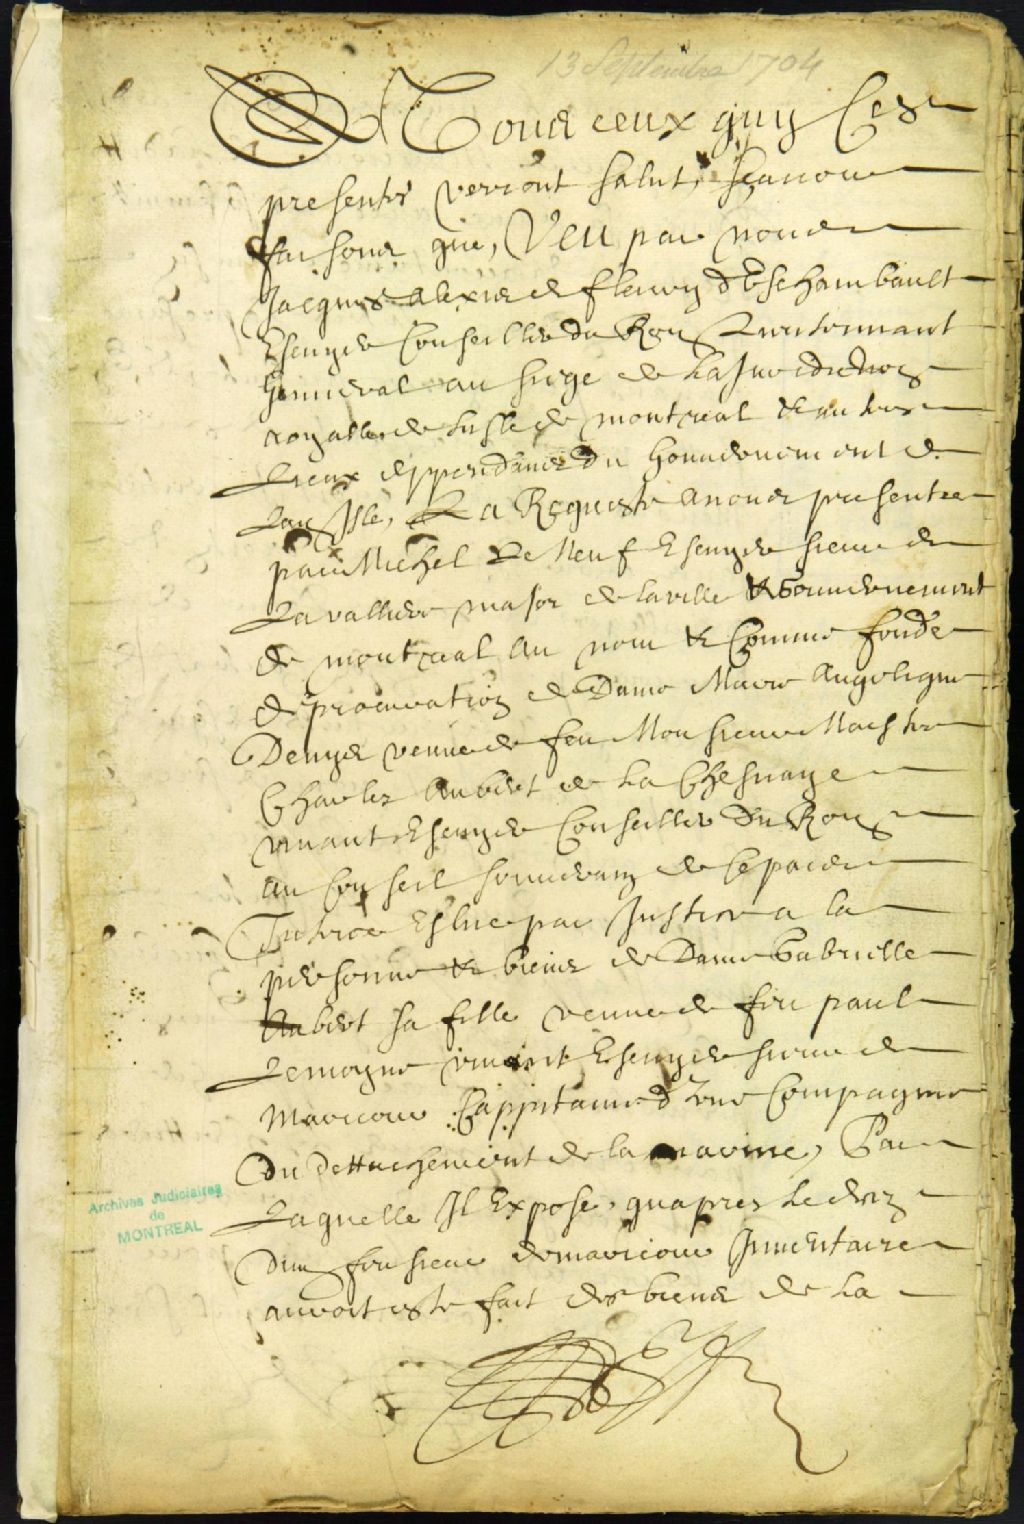 13 Septembre 1704
A Tous ceux quy Ces
presentes verront salut, scavoir
faisons que, Veu par nous
Jacques alexis de fleury d'Eschambault
Escuyer Conseiller du Roy Lieutennant
General au siege de la Jurisdiction
royalle de L'isle de montreal & autres
Lieux deppendances du Gouvernement de
Lad Isle, La Requeste a nous presentée
par Michel Le Neuf Escuyer sieur de
La valliere major de la ville & Gouvernement
de montreal au nom & Comme fondé
de procuration de Dame Marie Angelique
Denys veuve de feu Monsieur Maistre
Charles Aubert de La Chesnaye
vivant Escuyer Conseiller Du Roy
au Conseil souverain de Ce païs
Tutrice Eslue par Justice a la
personne & biens de Dame Gabrielle
Aubert sa fille veuve de feu paul
Lemoyne vivant Escuyer sieur de
Maricour Cappitaine d'une Compagnie
Du Dettachement de la marine, Par
Laquelle Il Expose, qu'apres le decez
dud feu sieur de maricour Inventaire
auroit esté fait des biens de La
Archives Judiciaires
de
MONTREAL